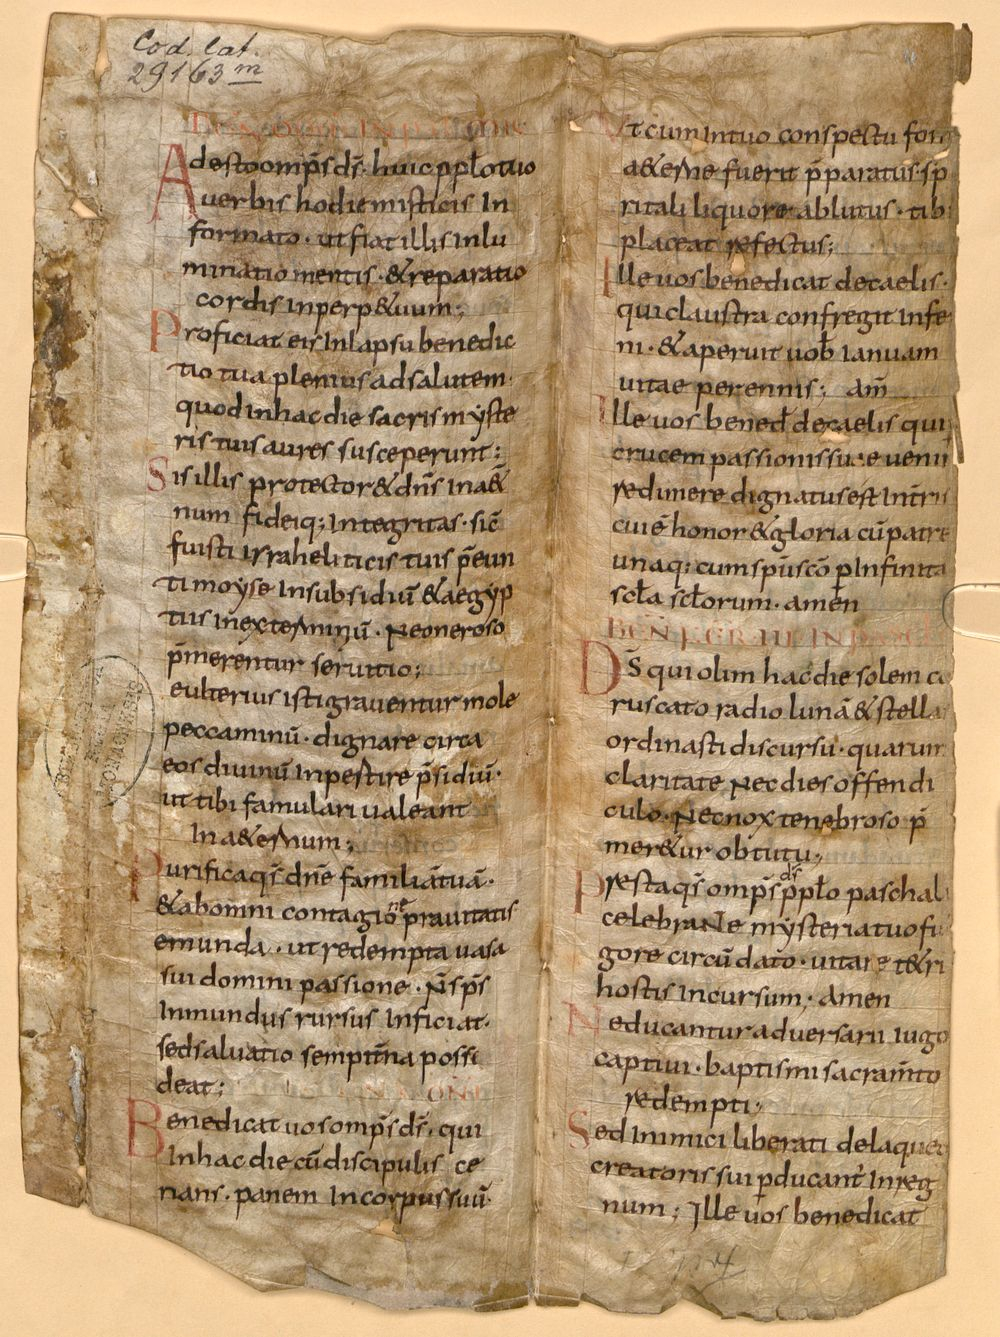 Cod. lat.
29163 m
Adesto omp̄s d̄s · huic pplo tuo
uerbis hodie misticis In
formato · ut fiat illis Inlu
minatio mentis · & reparatio
cordis inperp&uum ;
Proficiat eis Inlapsu benedic
tio tua plenius ad salutem ·
quod in hac die sacris myste
riis tuis aures susceperunt ;
Sis illis protector & dn̄s In a&
num fideiq; Integritas · sic̄
fuisti israheliticis tuis p̄eun
ti moyse Insubsidiū & aegyp
tiis inexterminiū · Ne oneroso
p̄merentur seruitio ;
eulterius isti grauentur mole
peccaminū · dignare circa
eos diuinū Inpestire p̄sidiū ·
ut tibi famulari ualeant
In a&ernum ;
Purifica qs̄ dn̄e familiā tuā ·
& abomni contagione prauitatis
emunda · ut redempta uasa
sui domini passione · N̄ sp̄s
Inmundus rursus Inficiat ·
sed saluatio sempit̄na possi
deat ;
Benedicat uos omp̄s d̄s · qui
In hac die cū discipulis ce
nans · panem In corpus suū ·
Ut cum In tuo conspectu
a&erne fuerit p̄paratus · sp
ritali liquore ablutus · tib
placeat refectus ;
Ille uos benedicat de caelis ·
qui claustra confregit Infe
ni · & aperuit uob̄ Ianuam
uitae perennis ; am̄
Ille uos bened̄ de caelis qui
crucem passionis suae uenit
redimere dignatus est In t̄ris
cui ē honor & gloria cū patre
unaq; cum sp̄u sc̄o p Infinita
scła scłorum · amen
BEN̄ FER III IN
D̄s qui olim hac die solem co
ruscato radio lunā & stella
ordinasti discursu · quarum
claritate Nec dies offendi
culo · Nec nox tenebroso p̄
mer&ur obtutu ;
Presta qs̄ omp̄s d̄s pplo paschal
celebrante mysteria tuo fu
gore circū dato · uitare t&ri
hostis Incursum ; Amen
Neducantur aduersarii Iugo
captiui · baptismi sacram̄to
redempti ;
Sed Inimici liberati de laque
creatoris sui pducant̄ In reg
num ; Ille uos benedicat